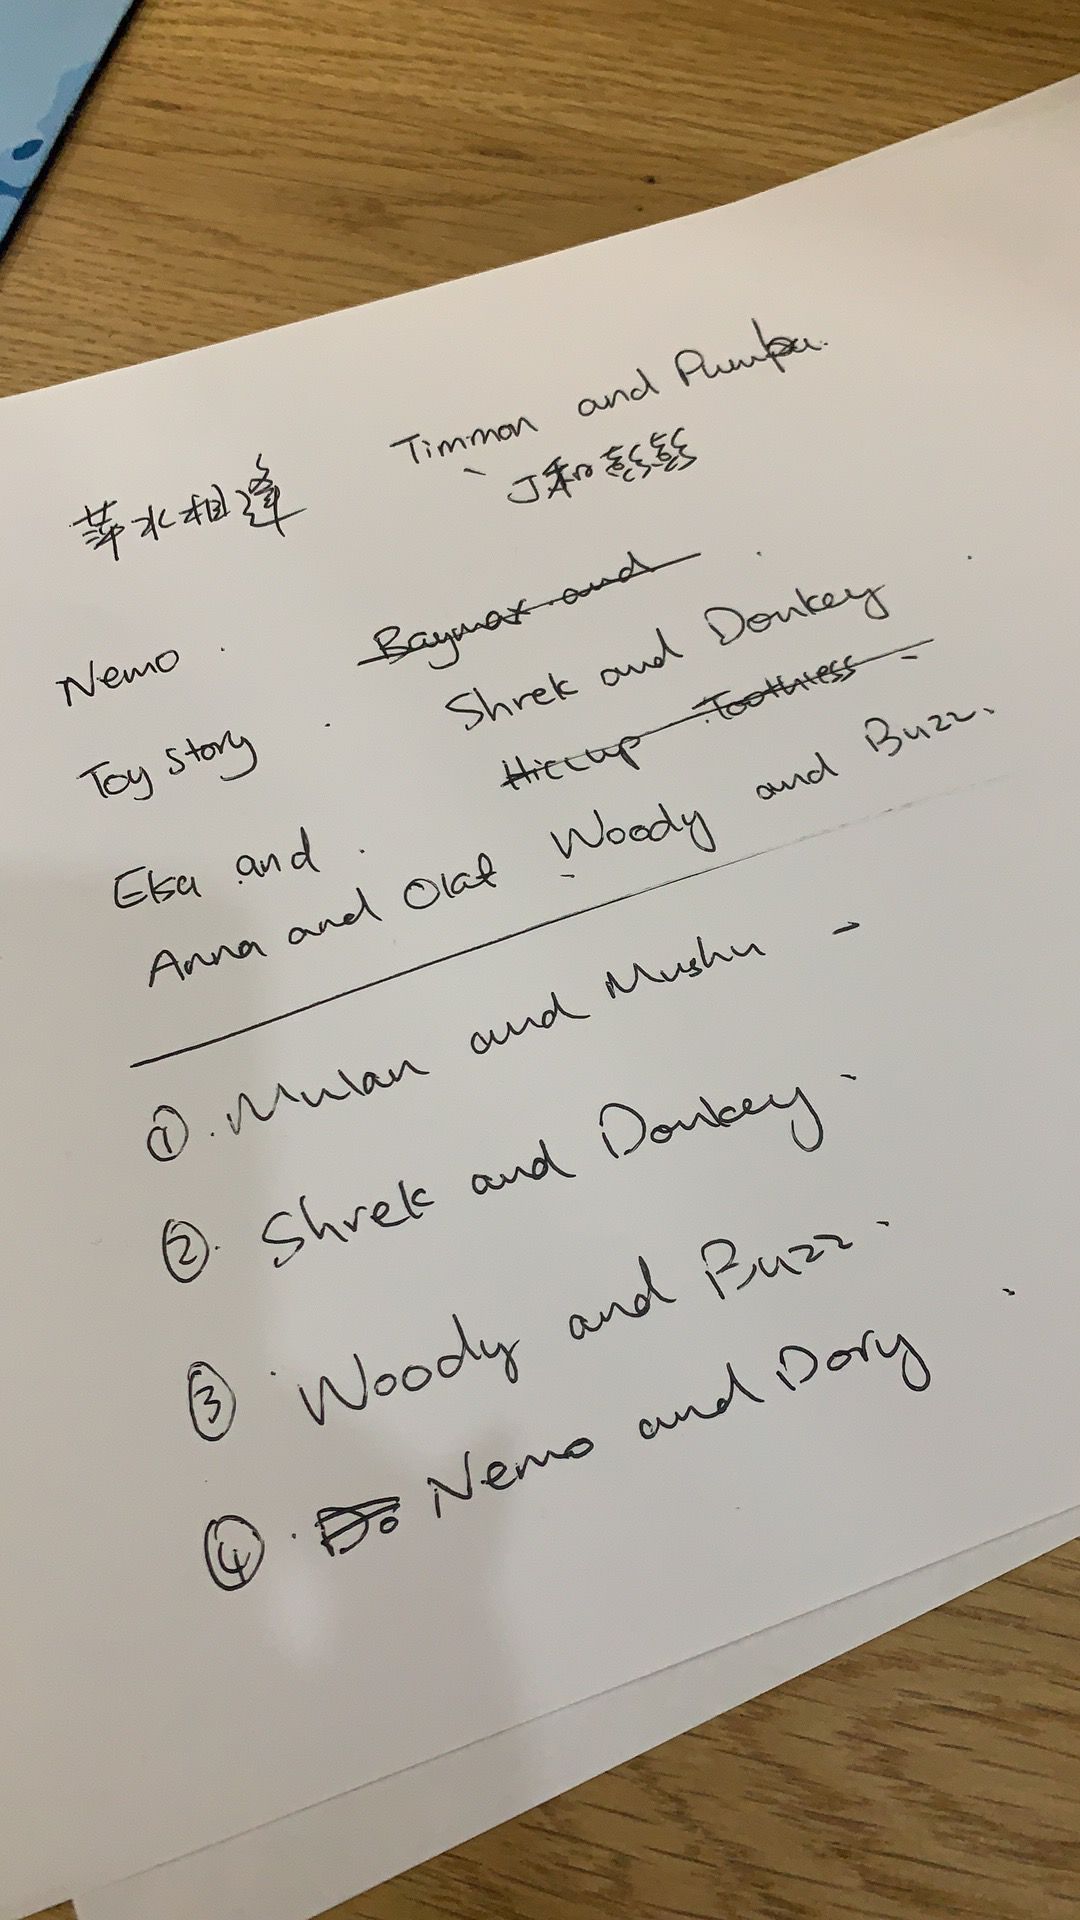 Timmon and Pumba.
萍水相逢
J和彭彭
Baymax and
Nemo
Shrek and Donkey
Toy story
Hiccup Toothless
Elsa and
Woody and Buzz.
Anna and Olaf
① Mulan and Mushu
② Shrek and Donkey
③ Woody and Buzz
④ Do Nemo and Dory